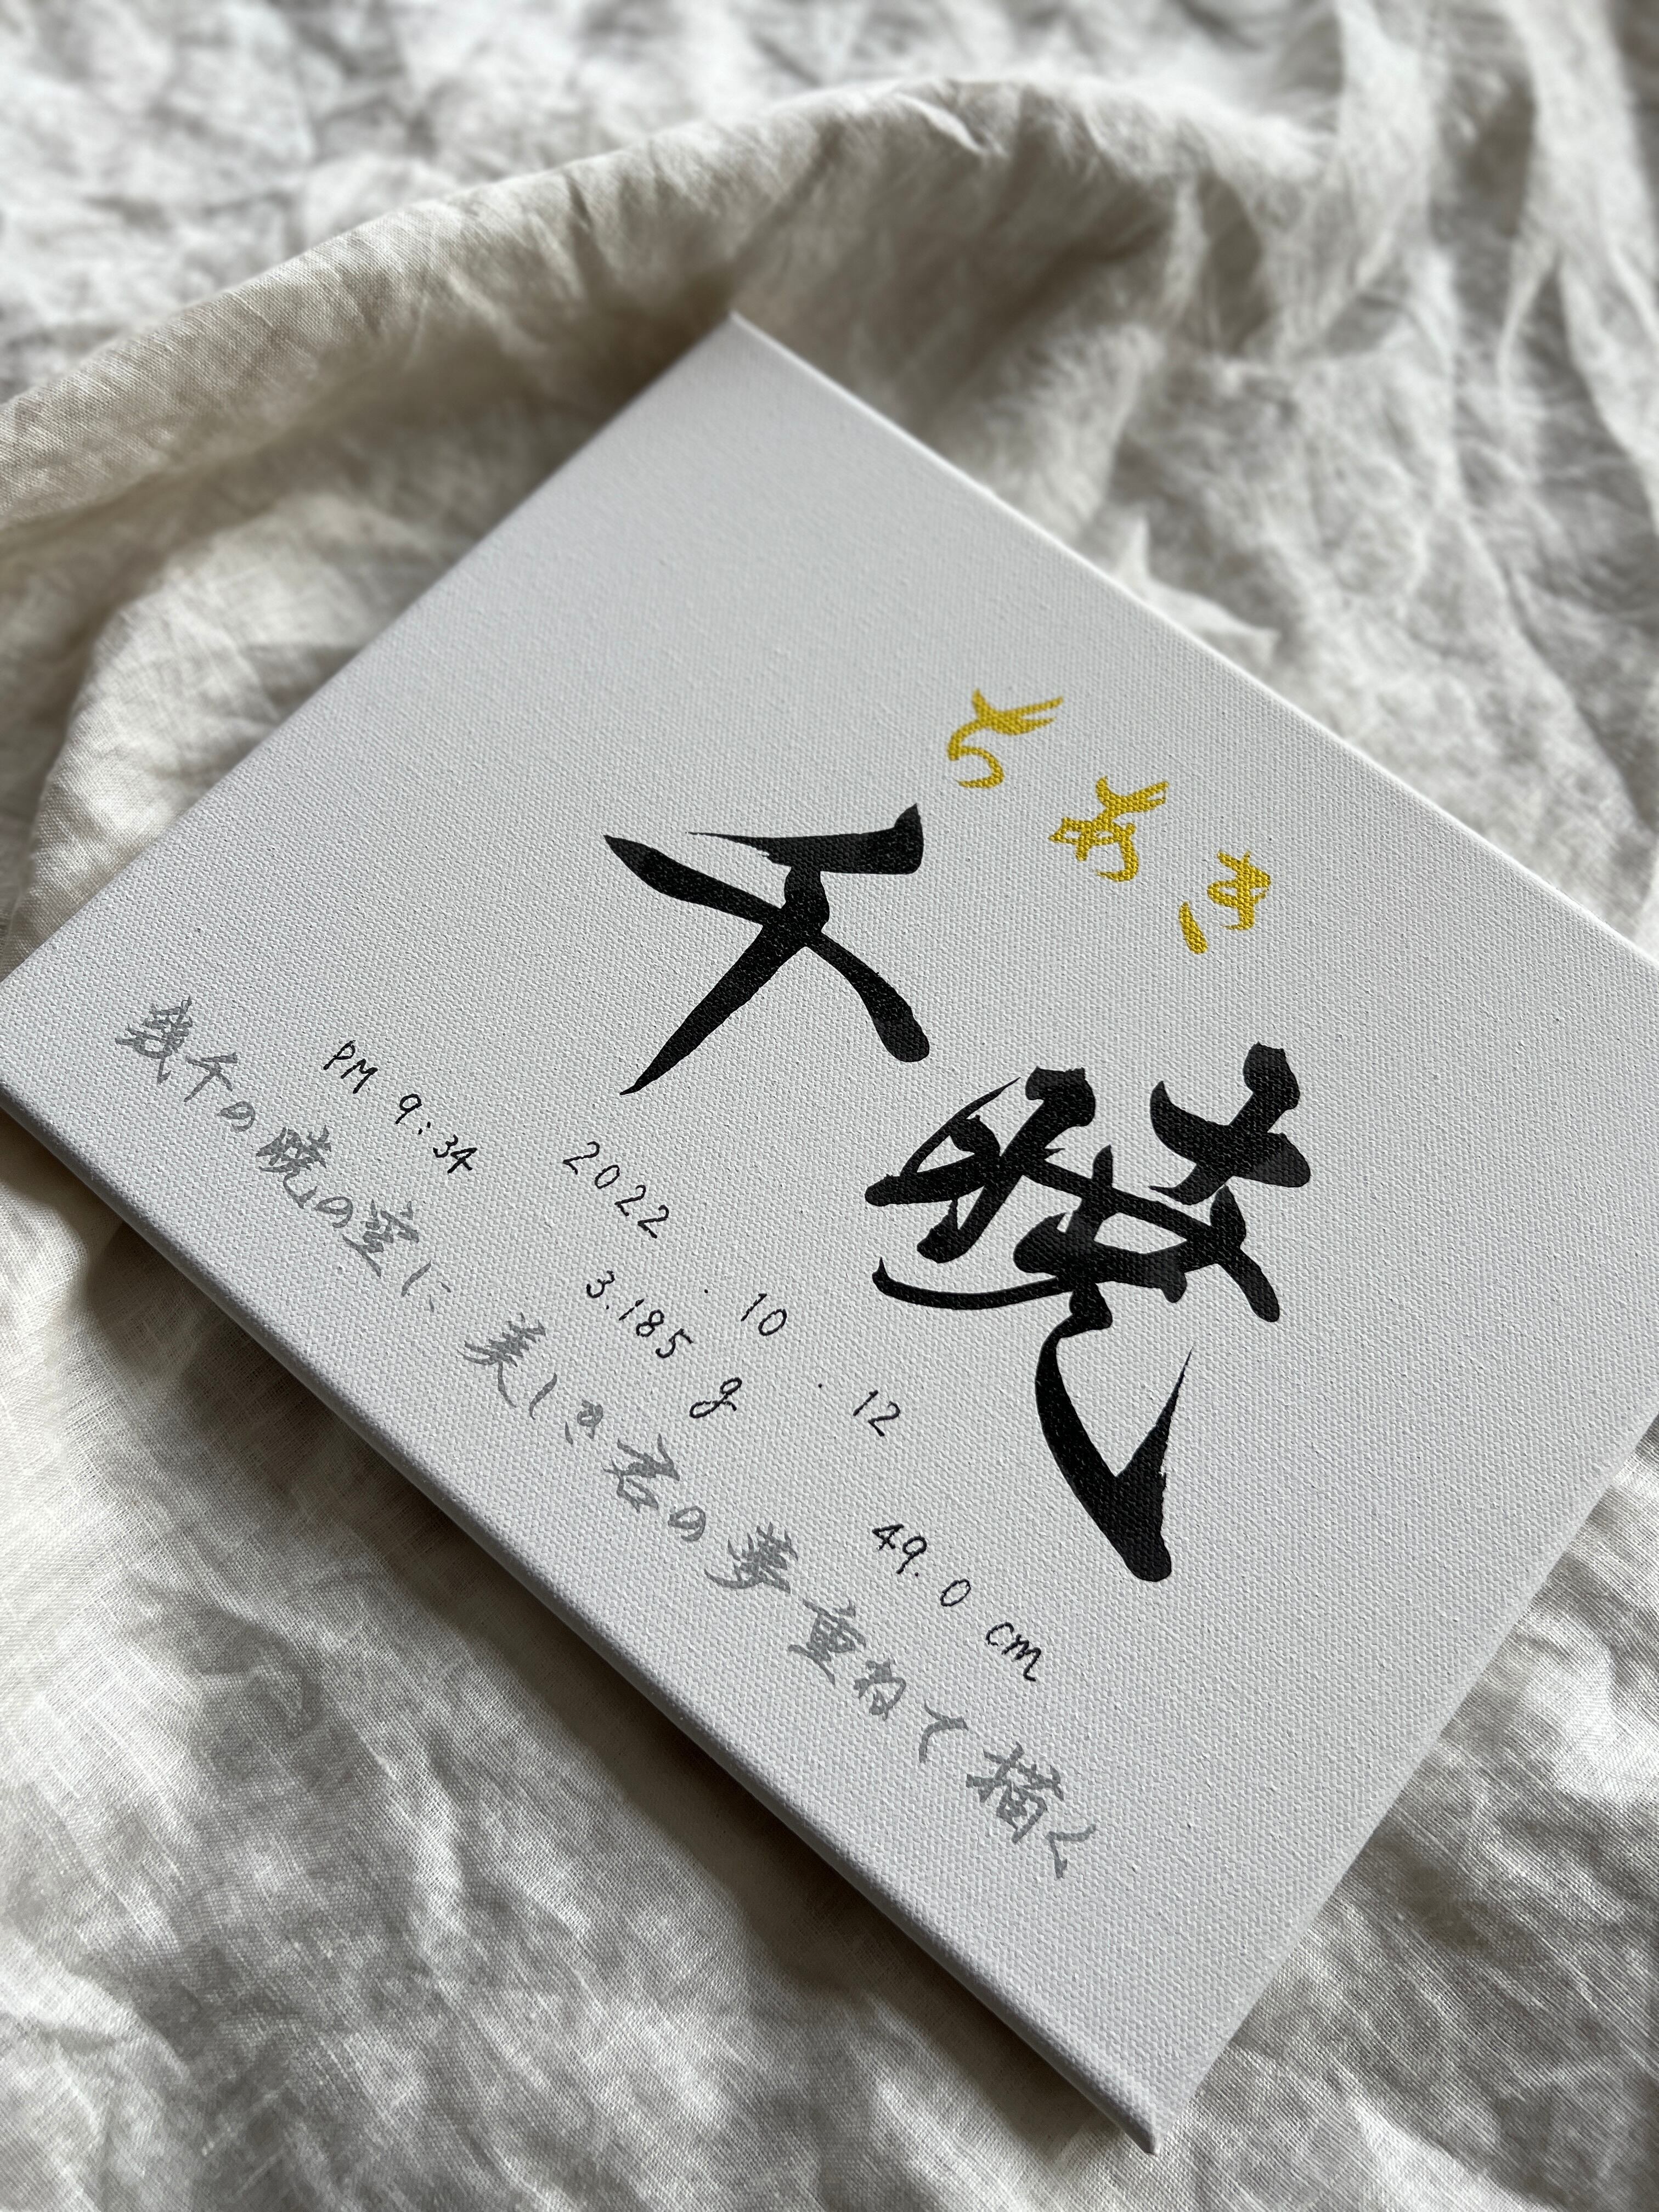 ちあき
千暁
2022 . 10 . 12
PM 9:34 3.185 g 49.0 cm
幾千の暁の空に 美しき君の夢重ねて描く